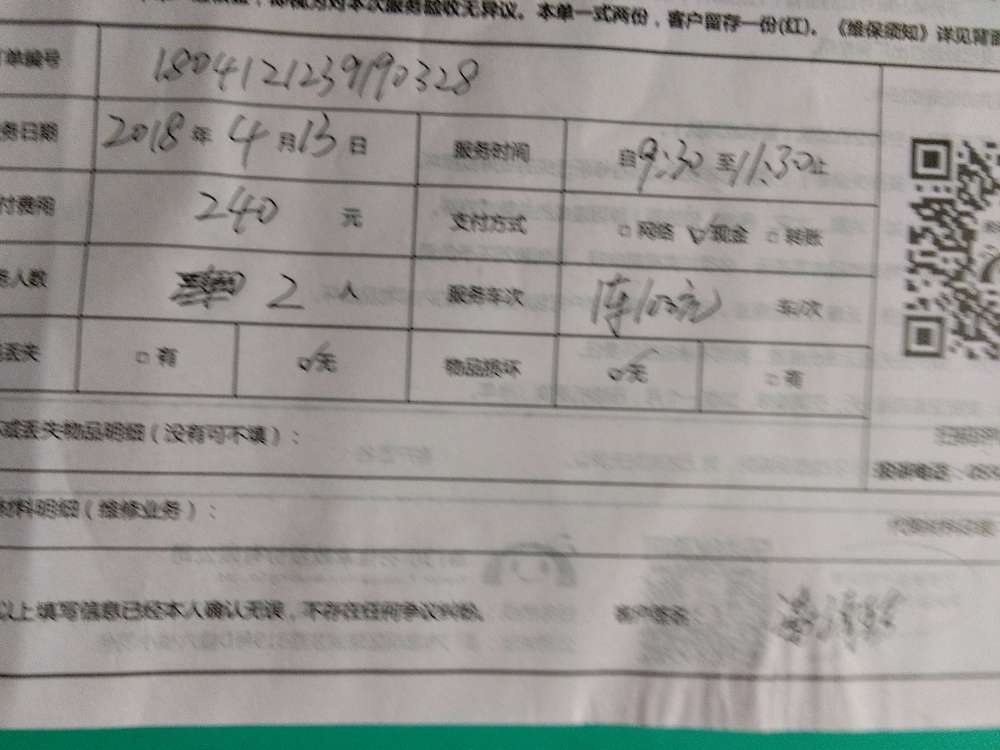 对本次服务验收无异议。本单一式两份，客户留存一份(红)。《维保须知》详见背面
单编号 1804121239190328
务日期 2018年4月13日 服务时间 自9:30至11:30止
付费用 240 元 支付方式 □网络 ☑现金 □转账
人数 2 人 服务车次 1车100元 车/次
丢失 □有 ☑无 物品损坏 ☑无 □有
或丢失物品明细（没有可不填）：
投诉电话：
材料明细（维修业务）：
以上填写信息已经本人确认无误，不存在任何争议纠纷。 客户签名：